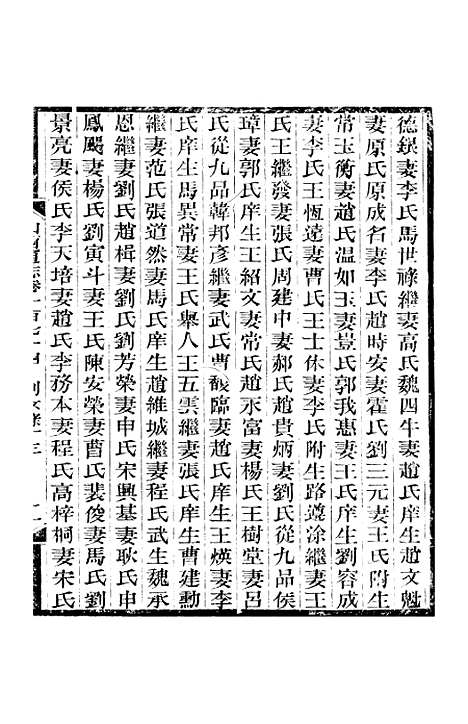 德鋹妻李氏馬世祿繼妻高氏魏四牛妻趙氏庠生趙文魁
妻原氏原成名妻李氏趙時安妻霍氏劉三元妻王氏附生
常玉衡妻趙氏溫如玉妻景氏郭我惠妻王氏庠生劉容成
妻李氏王恆遠妻曹氏王士休妻李氏附生路遵涂繼妻王
氏王繼發妻張氏周建中妻郝氏趙貴炳妻劉氏從九品侯
璋妻郭氏庠生王紹文妻常氏趙永富妻楊氏王樹堂妻呂
氏從九品韓邦彥繼妻武氏曹觀臨妻趙氏庠生王煐妻李
氏庠生馬異常妻王氏舉人王五雲繼妻張氏庠生曹建勳
繼妻范氏張道然妻馬氏庠生趙維城繼妻程氏武生魏承
恩繼妻劉氏趙楫妻劉氏劉芳榮妻申氏宋興基妻耿氏申
鳳颺妻楊氏劉寅斗妻王氏陳安榮妻曹氏裴俊妻馬氏劉
景亮妻侯氏李天培妻趙氏李務本妻程氏高梓桐妻宋氏